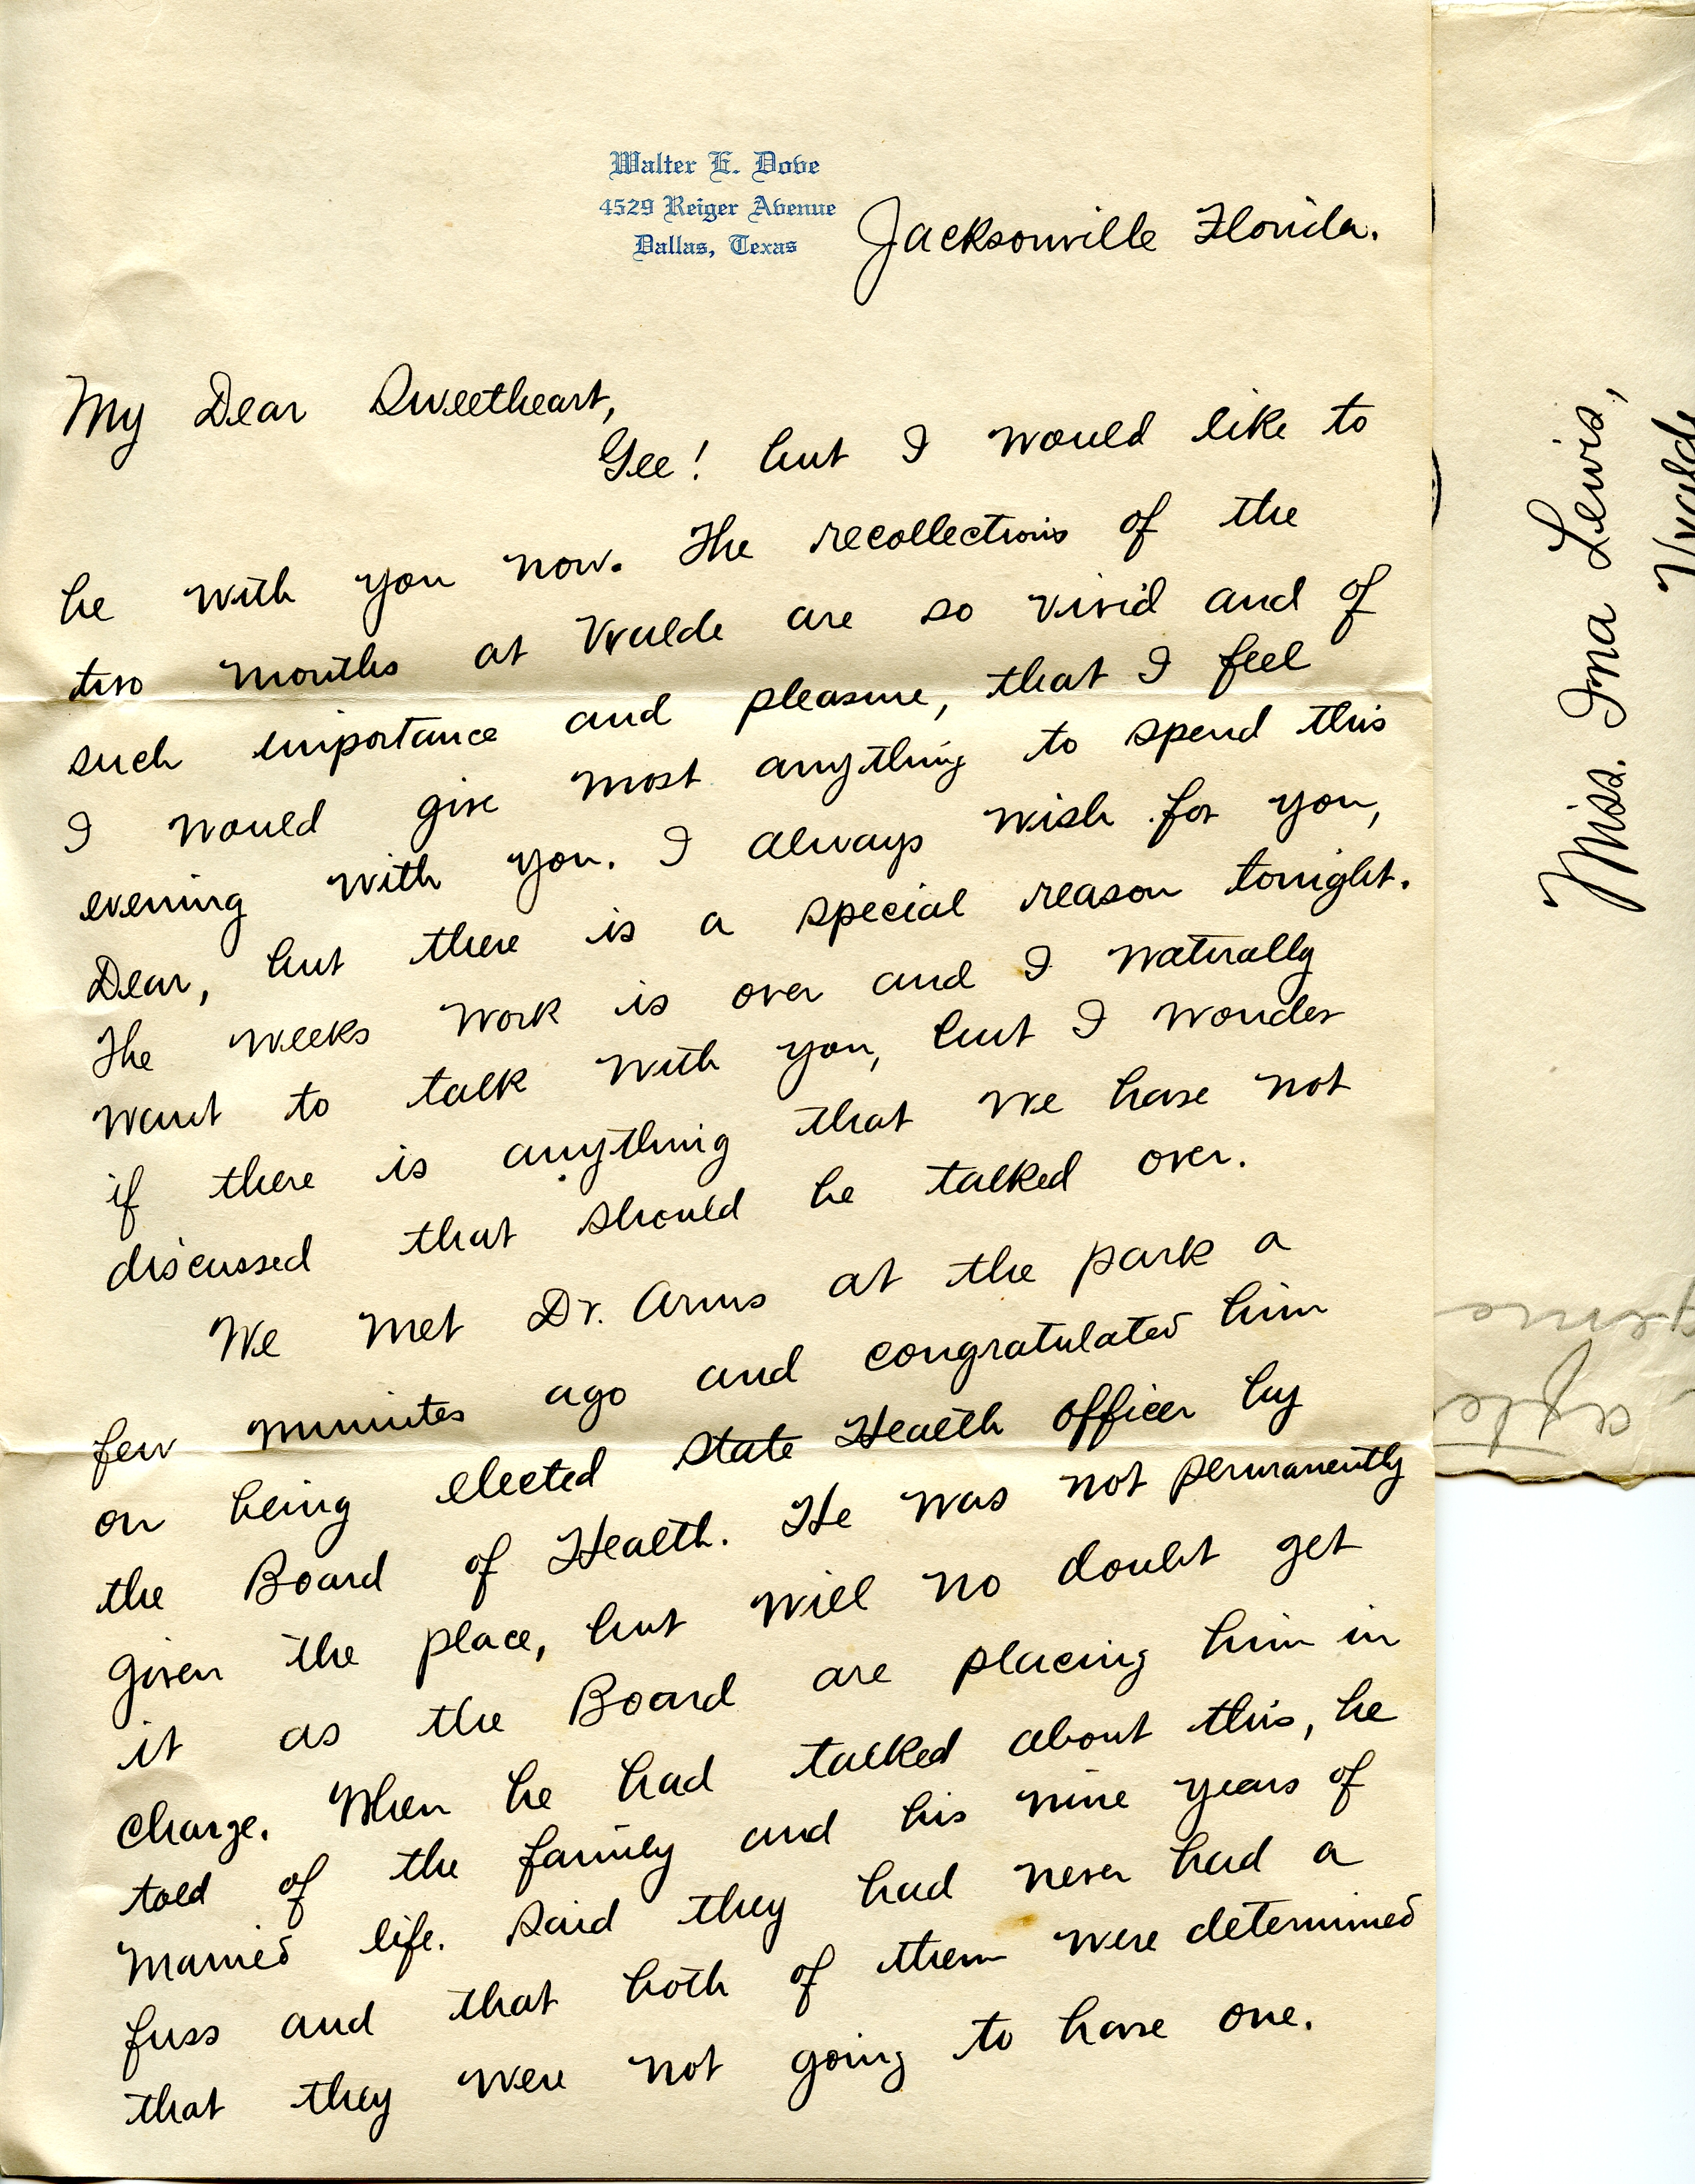 Walter E. Dove
4529 Reiger Avenue
Dallas, Texas
Jacksonville Florida.
My Dear Sweetheart,
Gee! but I would like to
be with you now. The recollections of the
two months at Uvalde are so vivid and of
such importance and pleasure, that I feel
I would give most anything to spend this
evening with you. I always wish for you,
Dear, but there is a special reason tonight.
The weeks work is over and I naturally
want to talk with you, but I wonder
if there is anything that we have not
discussed that should be talked over.
We met Dr. Arms at the park a
few minutes ago and congratulated him
on being elected State Health officer by
the Board of Health. He was not permanently
given the place, but will no doubt get
it as the Board are placing him in
charge. When he had talked about this, he
told of the family and his nine years of
married life. Said they had never had a
fuss and that both of them were determined
that they were not going to have one.
Miss. Ina Lewis,
Uvalde